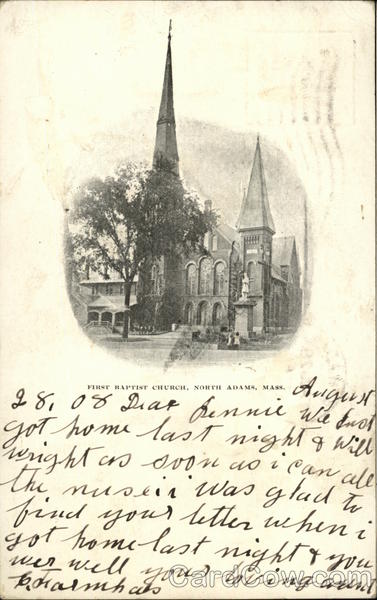 FIRST BAPTIST CHURCH, NORTH ADAMS, MASS.
August
28, 08 Dear Rennie We Just
got home last night & Will
wright as soon as i can all
the nuse i i was glad to
find your letter when i
got home last night & you
wer well your loving aunt
Farmhas
CardCow.com